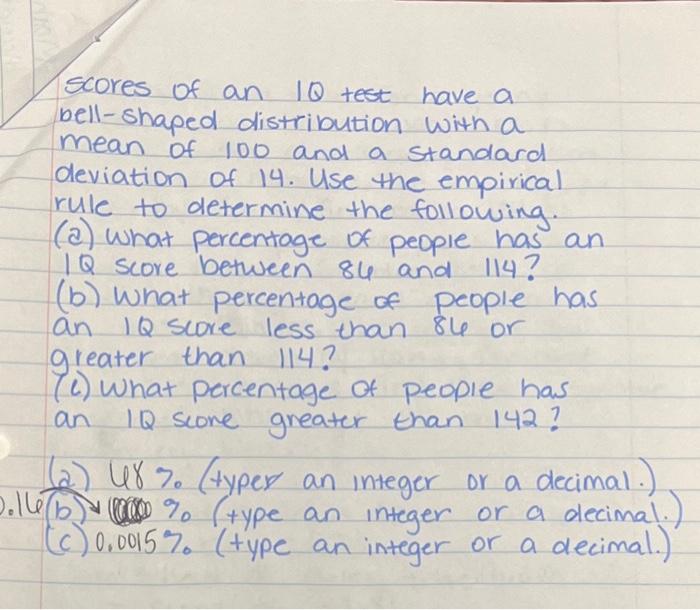 scores of an IQ test have a
bell-shaped distribution with a
mean of 100 and a standard
deviation of 14. Use the empirical
rule to determine the following.
(a) What percentage of people has an
IQ score between 86 and 114?
(b) What percentage of people has
an IQ score less than 86 or
greater than 114?
(c) What percentage of people has
an IQ score greater than 142?
(a) 68 % (typer an integer or a decimal.)
0.16 (b) % (type an integer or a decimal.)
(c) 0.0015 % (type an integer or a decimal.)